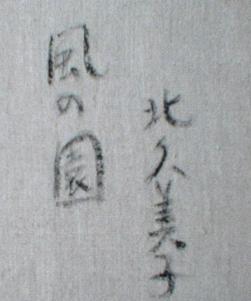 風の園
北久美子